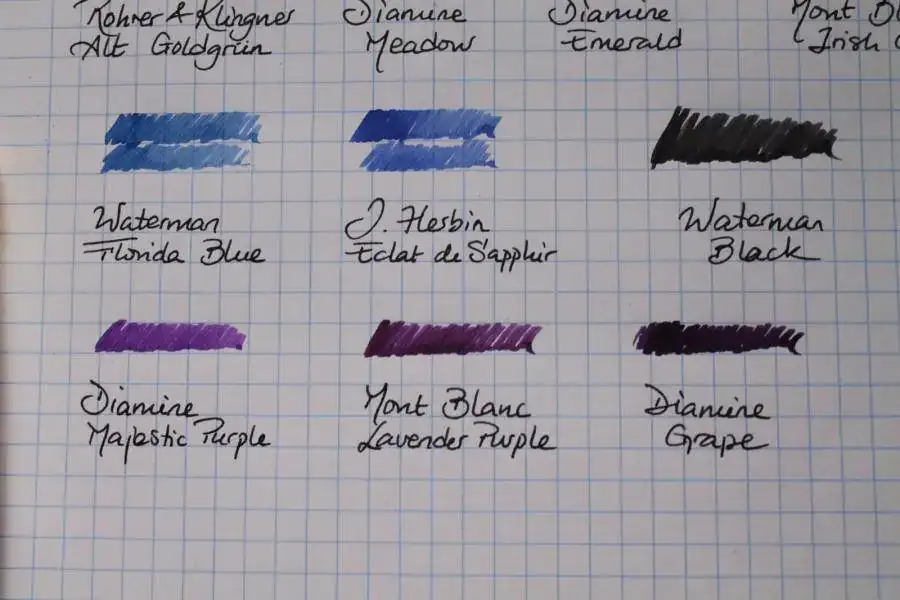 Rohrer & Klingner
Alt Goldgrün
Diamine
Meadow
Diamine
Emerald
Mont
Irish
Waterman
Florida Blue
J. Herbin
Eclat de Sapphir
Waterman
Black
Diamine
Majestic Purple
Mont Blanc
Lavender Purple
Diamine
Grape